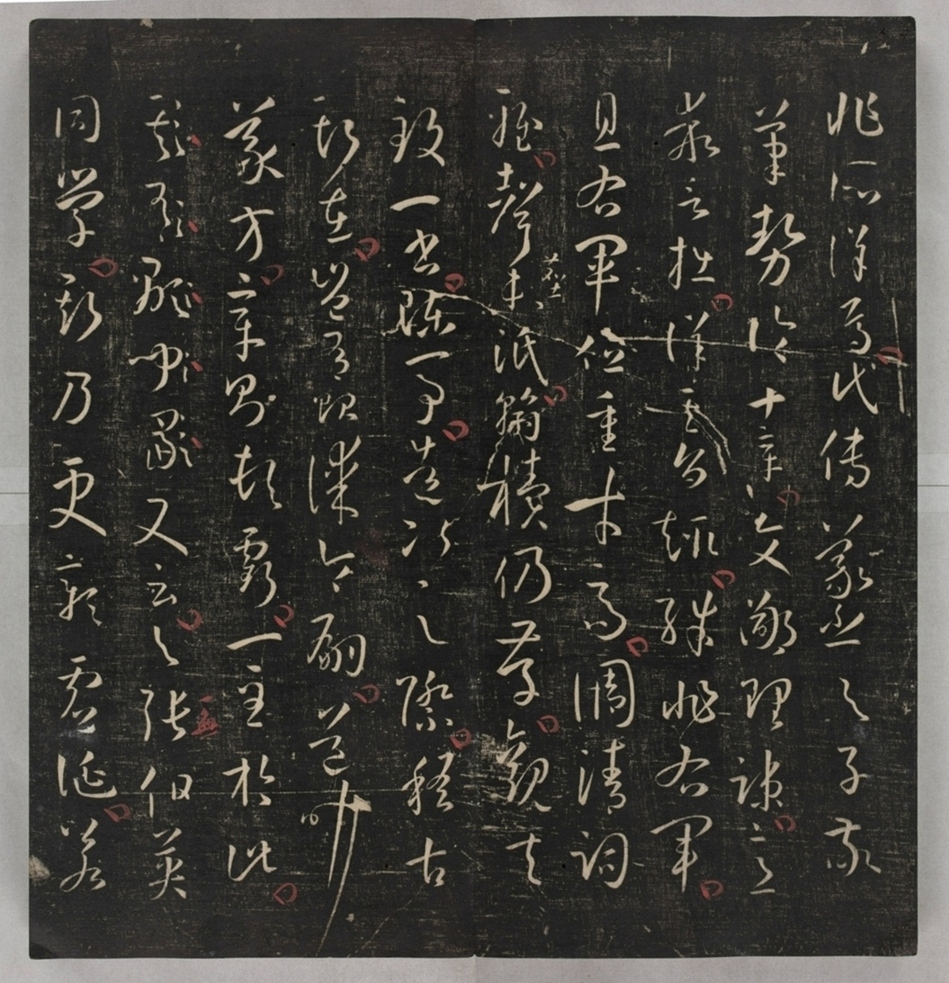 非所詳焉代傳羲之与子敬
筆勢論十章文鄙理疎意
乖言拙詳其旨趣殊非右軍
且右軍位重才高調清詞
雅聲塵未泯翰櫝仍存觀夫
致一書陳一事造次之際稽古
斯在豈有貽謀令嗣道叶
義方章則頓虧一至於此
又云与張伯英
同學斯乃更彰虛誕若